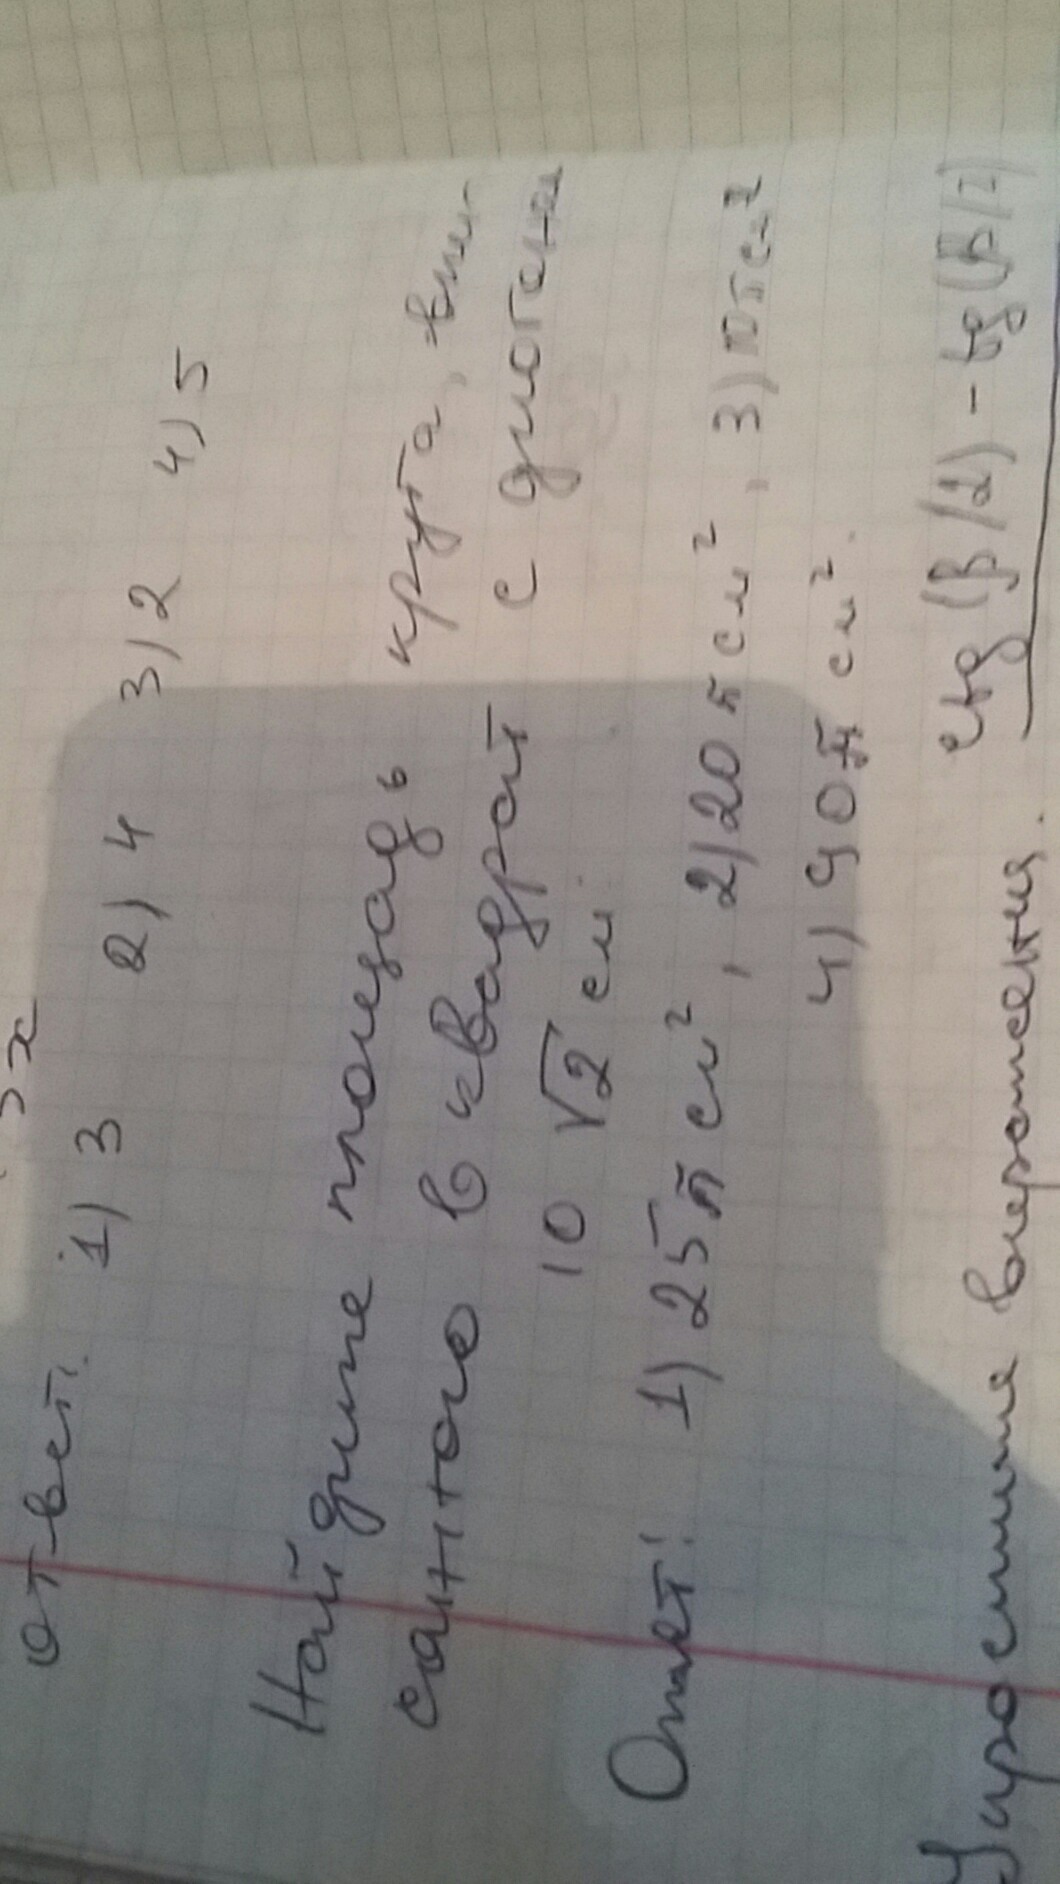 3x
ответ:
1) 3 2) 4 3) 2 4) 5
Найдите площадь круга, впи-
санного в квадрат с диагональю
10 √2 см.
Ответ: 1) 25π см², 2) 20π см², 3) 10π см²
4) 40π см².
Упростите выражения. ctg (β/2) - tg (β/2)